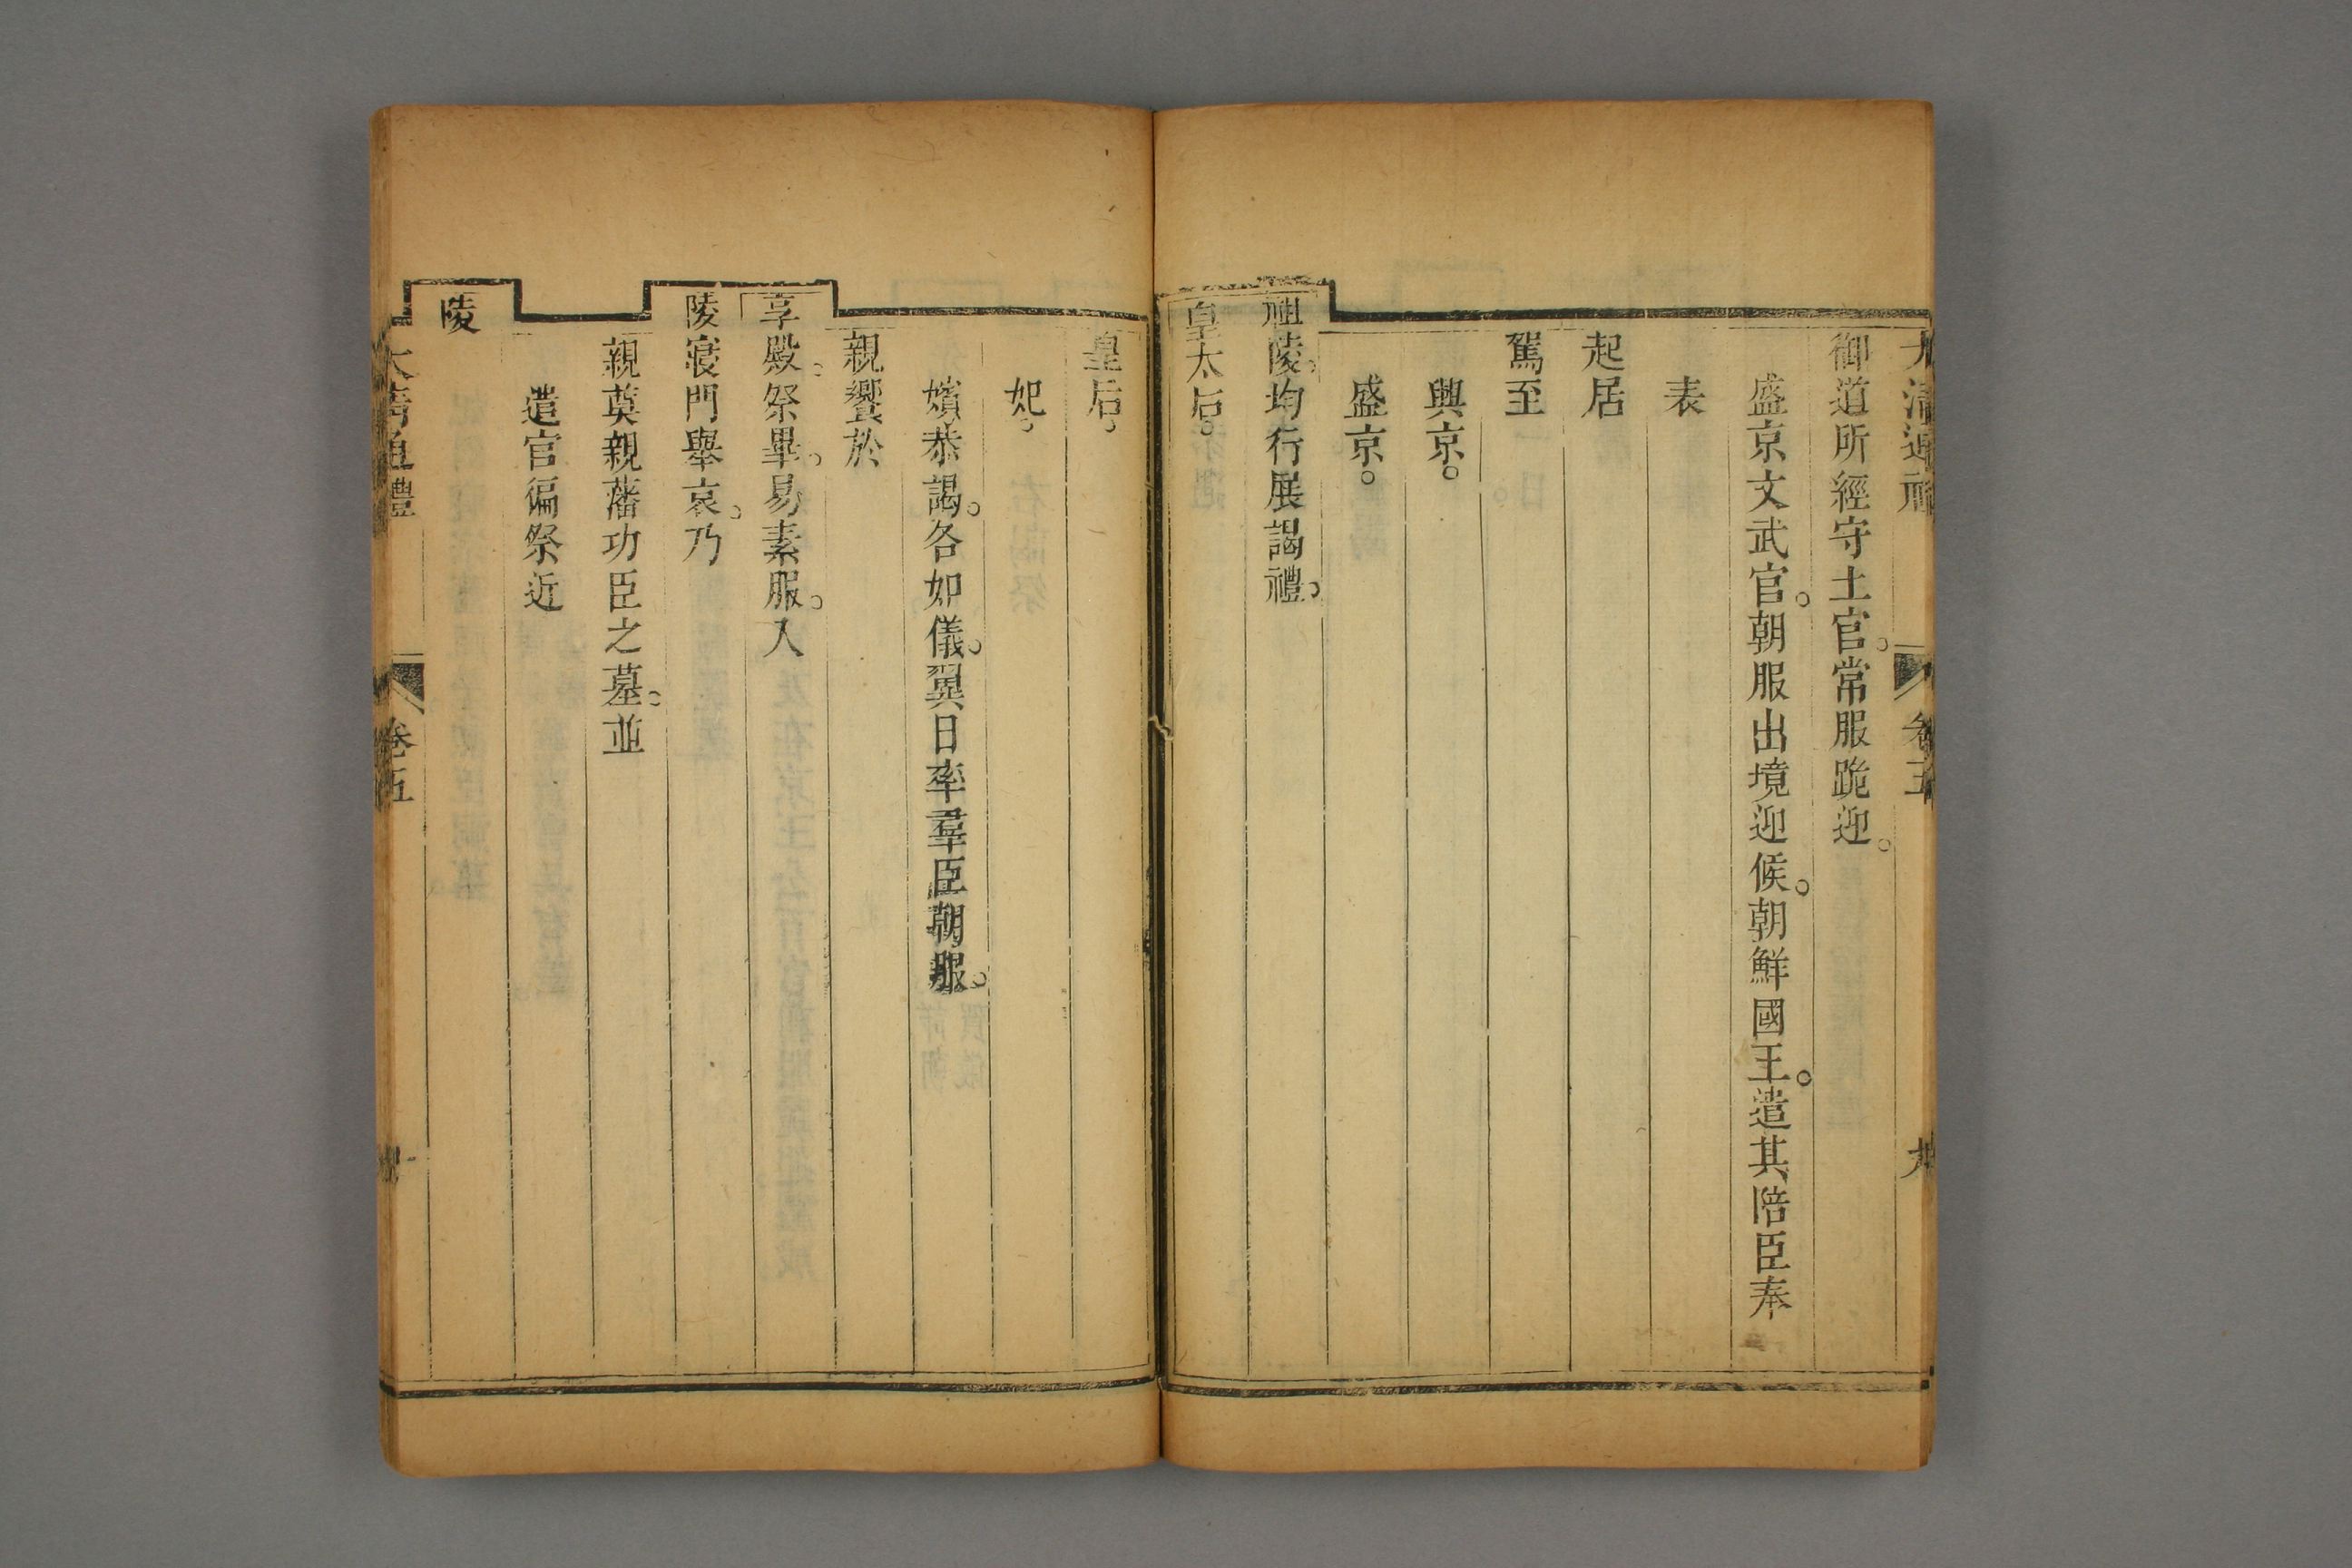 大清通禮 卷五 九
御道所經守土官。常服跪迎。
盛京文武官。朝服出境迎候。朝鮮國王。遣其陪臣奉
表
起居
駕至
興京。
盛京。
祖陵。均行展謁禮。
皇太后。
皇后。
妃。
嬪。恭謁。各如儀。翼日率羣臣朝服。
親饗於
享殿。祭畢。易素服。入
陵寢門舉哀。乃
親奠親藩功臣之墓。並
遣官徧祭近
陵
大清通禮 卷五